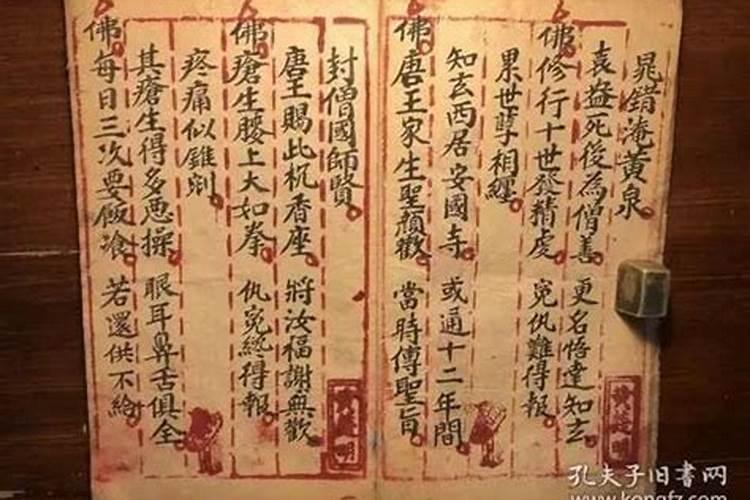 晁錯淹黃泉
袁益死後為僧善 更名悟達知玄
佛修行十世發精虔 冤仇難得報
累世孽相纏
知玄西居安國寺 或通十二年間
佛唐王家生聖顏歡 當時傳聖旨
封僧國師賢
唐王賜此杌香座 將汝福謝無歡
佛瘡生腰上大如拳 仇冤終得報
疼痛似錐剜
其瘡生得多 操 眼耳鼻舌俱全
佛每日三次要飯飡 若還供不給
孔夫子旧书网